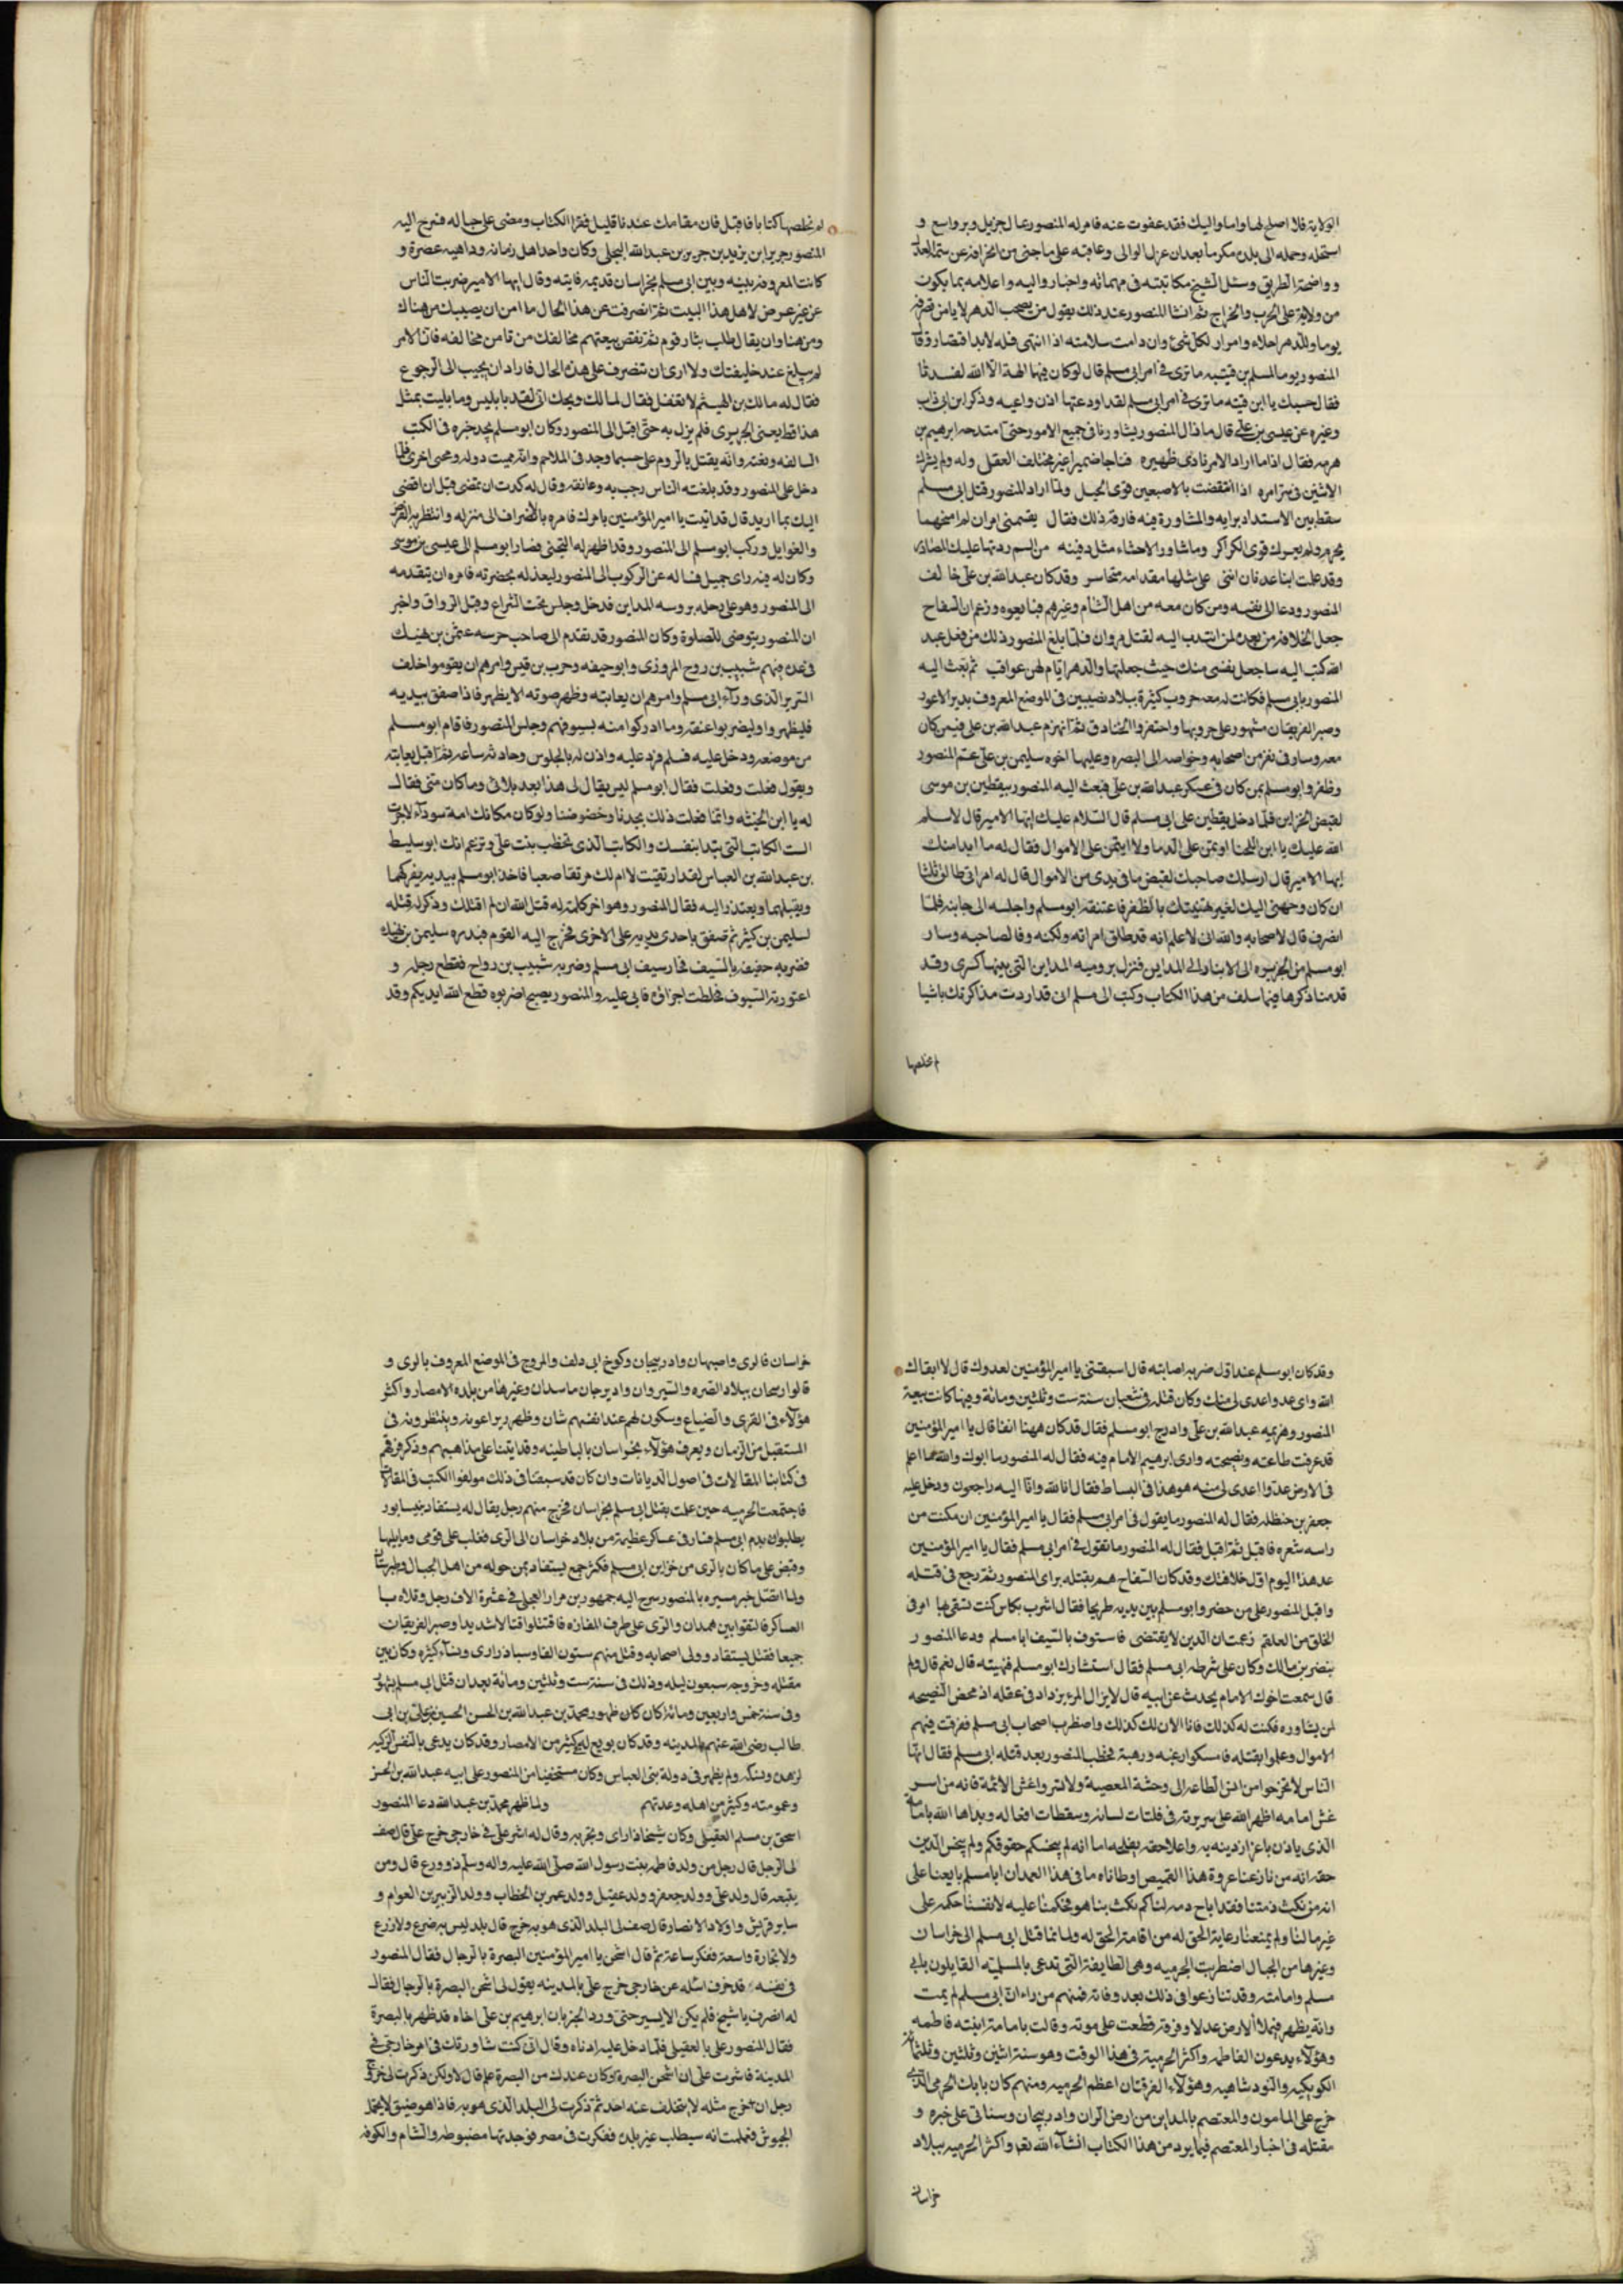 الولاية فلا اصلح لها واما واليك فقد عفوت عنه فامر له المنصور بمال جزيل وبر واسع و
استحله وحمله الى بلده مكرما بعد ان عزل الوالى وعاقبه على ما جنى من انحرافه عن سنة العدل
وواضحة الطريق وسئل الشيخ مكاتبته فى مهماته واخباره واليه واعلامه بما يكون
من ولاية على الحرب والخراج ثم انشا المنصور عند ذلك يقول من يصحب الدهر لا يامن تصرفه
يوما وللدهر احلاء وامرار لكل شئ وان دامت سلامته اذا انتهى فله لا بد اقصار وقال
المنصور يوما لمسلم بن قتيبه ما ترى فى امر ابى مسلم قال لو كان فيها الهة الا الله لفسدتا
فقال حسبك يا ابن قتيبه لقد اودعتها اذن واعيه وذكر ابن ذاب
وغيره عن عيسى بن على قال ما زال المنصور يشاورنا فى جميع الامور حتى امتدحه ابرهيم بن
هرمه فقال اذا ما اراد الامر ناجى ضميره فناجا ضميرا غير مختلف العقل وله ولم يشرك
الاثنين فى سر امره اذا انتقضت بالاصبعين قوى الحبل ولما اراد المنصور قتل ابى مسلم
سقط بين الاستبداد برايه والمشاورة فيه فارقه ذلك فقال يقسمنى امران لم امتحنهما
بحزم ولم يعرك قوى الكراكر وما شاور الاحشاء مثل دفينه من الهم ردتها عليك المصادر
وقد علمت ابناء عدنان اننى على مثلها مقدامه متجاسر وقد كان عبد الله بن على خالف
المنصور ودعا الى نفسه ومن كان معه من اهل الشام وغيرهم فبايعوه وزعم ان السفاح
جعل الخلافة من بعده لمن انتدب اليه لقتل مروان فلما بلغ المنصور ذلك من فعل عبد
الله كتب اليه ساجعل نفسى منك حيث جعلتها والدهر ايام لهن عواقب ثم بعث اليه
المنصور بابى مسلم فكانت له معه حروب كثيرة ببلاد نصيبين فى الموضع المعروف بدير الاعور
وصبر الفريقان شهورا على حروبها واحتفروا الخنادق ثم انهزم عبد الله بن على فيمن كان
معه وسار فى نفر من اصحابه وخواصه الى البصره وعليها اخوه سليمن بن على عم المنصور
وظفر ابو مسلم بمن كان فى عسكر عبد الله بن على فبعث اليه المنصور بيقطين بن موسى
لقبض الخزاين فلما دخل يقطين على ابى مسلم قال السلام عليك ايها الامير قال لا سلم
الله عليك يا ابن اللخنا اوتمن على الدما ولا اوتمن على الاموال فقال له ما ابدا منك
ايها الامير قال ارسلك صاحبك لقبض ما فى يدى من الاموال قال له امراتى طالق ثلثا
ان كان وجهنى اليك لغير تهنيتك بالظفر فاعتنقه ابو مسلم واجلسه الى جانبه فلما
انصرف قال لاصحابه والله انى لاعلم انه قد طلق امراته ولكنه وفا لصاحبه وسار
ابو مسلم من الجزيره الى الانبار والى المداين فنزل بروميه المداين التى بناها كسرى وقد
قدمنا ذكرها فيما سلف من هذا الكتاب وكتب الى مسلم انى قد اردت مذاكرتك باشيا
لم تحملها
لم تحملها كتابا فاقبل فان مقامك عندنا قليل فقرا الكتاب ومضى على حاله فسرح اليه
المنصور جرير ابن يزيد بن جرير بن عبد الله البجلى وكان واحد اهل زمانه وداهيه عصره و
كانت المعرفة بينه وبين ابى مسلم بخراسان قديمه فاتيته وقال ايها الامير ضربت الناس
عن غير عرض لاهل هذا البيت ثم انصرفت عن هذا الحال ما امن ان يصيبك من هناك
ومن هنا وان يقال طلب بثار قوم ثم نقض بيعتهم مخالفك من تامن مخالفه فان الامر
لم يبلغ عند خليفتك ولا ارى ان تنصرف على هذه الحال فاراد ان يجيب الى الرجوع
فقال له مالك بن الهيثم لا تفعل فقال لمالك ويحك انى لقد بليت بابليس وما بليت بمثل
هذا قط يعنى الجريرى فلم يزل به حتى اقبل الى المنصور وكان ابو مسلم يجد خبره فى الكتب
السالفه ونعته وانه يقتل بالروم على حسب ما وجد فى الملاحم وانه مميت دوله ومحيى اخرى فلما
دخل على المنصور وقد تلقته الناس رحب به وعانقه وقال له كدت ان تمضى قبل ان افضى
اليك بما اريد قال قد اتيت يا امير المؤمنين بامرك فامره بالانصراف الى منزله وانتظر به الفرص
والغوايل وركب ابو مسلم الى المنصور وقد اظهر له التجنى فصار ابو مسلم الى عيسى بن موسى
وكان له فيه راى جميل فساله عن الركوب الى المنصور ليعذله بحضرته فامره ان يتقدمه
الى المنصور وهو على دجله بروميه المداين فدخل وجلس تحت الشراع وقيل الرواق واخبر
ان المنصور يتوضى للصلوة وكان المنصور قد تقدم الى صاحب حرسه عثمن بن نهيك
فى عده منهم شبيب بن روح المروزى وابو حنيفه وحرب بن قيس وامرهم ان يقوموا خلف
السرير الذى وراء ابى مسلم وامرهم ان يعاتبه وظهر صوته لا يظهر فاذا صفق بيديه
فليظهروا وليضربوا عنقه وما ادركوا منه بسيوفهم وجلس المنصور فاقام ابو مسلم
من موضعه ودخل عليه فسلم فرد عليه واذن له بالجلوس وحادثه ساعه ثم اقبل يعاتبه
ويقول فعلت وفعلت فقال ابو مسلم ليس يقال لى هذا بعد بلائى وما كان منى فقال
له يا ابن الخبيثه وانما فعلت ذلك بجدنا وحضوضنا ولو كان مكانك امة سوداء لاجزت
الست الكاتب الى تبدا بنفسك والكاتب الذى تخطب بنت على وتزعم انك ابو سليط
بن عبد الله بن العباس لقد ارتقيت لا ام لك مرتقا صعبا فاخذ ابو مسلم بيديه يفركهما
ويقبلهما ويعتذر اليه فقال المنصور وهو اخر كلمة له قتلنى الله ان لم اقتلك وذكر له قتله
لسليمن بن كثير ثم صفق باحدى يديه على الاخرى فخرج اليه القوم فبدره سليمن بن نهيك
فضربه ضربة خفيفه بالسيف فحار سيف ابى مسلم وضربه شبيب بن رواح فقطع رجله و
اعتورته السيوف فخلطت اجزاؤه فاتى عليه والمنصور يصيح اضربوه قطع الله ايديكم وقد
وقد كان ابو مسلم عند اول ضربه اصابته قال استبقنى يا امير المؤمنين لعدوك قال لا ابقاك
الله واى عدو اعدى لى منك وكان قتله فى شعبان سنة ست وثلثين ومائة وفيها كانت بيعة
المنصور وهزيمه عبد الله بن على وادرج ابو مسلم فقال قد كان ههنا انفا قال يا امير المؤمنين
قد عرفت طاعته ونصيحته وراى ابرهيم الامام فيه فقال له المنصور ما ابوك والله ما اعلم
فى الارض عدوا اعدى لى منه هو هذا فى البساط فقال انا لله وانا اليه راجعون ودخل عليه
جعفر بن حنظله فقال له المنصور ما يقول فى امر ابى مسلم فقال يا امير المؤمنين ان مكنت من
راسه شعره فاقبل ثم اقبل فقال له المنصور ما تقول فى امر ابى مسلم فقال يا امير المؤمنين
عد هذا اليوم اول خلافتك وقد كان السفاح هم بقتله براى المنصور ثم رجع فى قتله
واقبل المنصور على من حضر وابو مسلم بين يديه طريحا فقال اشرب بكاس كنت تسقى بها امر فى
الحلق من العلقم زعمت ان الدين لا يقتضى فاستوف بالسيف ابا مسلم ودعا المنصور
بنصر بن مالك وكان على شرطه ابى مسلم فقال استشارك ابو مسلم فنهيته قال نعم قال ولم
قال سمعت اخوك الامام يحدث عن ابيه قال لا يزال المرء يزداد فى عقله اذ محض النصيحه
لمن يشاوره فكنت له كذلك فانا الان لك كذلك واضطرب اصحاب ابى مسلم ففرقت فيهم
الاموال وعلموا بقتله فامسكوا رغبه ورهبة فخطب المنصور بعد قتله ابى مسلم فقال ايها
الناس لا تخرجوا من انس الطاعه الى وحشة المعصية ولا تسروا غش الائمة فانه من اسر
غش امامه اظهر الله على سريرته فى فلتات لسانه وسقطات افعاله وبداها الله بامامه
الذى باذن باعزاز دينه به واعلا حقه بفلجه اما انه لم يبخسكم حقوقكم ولم يبخس الدين
حقه انه من نازعنا عروة هذا القميص اوطاناه ما فى هذا الغمد ان ابا مسلم بايعنا على
انه من نكث ذمتنا فقد اباح دمه لنا ثم نكث بنا هو فحكمنا عليه لانفسنا حكمه على
غيره لنا ولم يمنعنا رعاية الحق له من اقامة الحق له ولما نما قتل ابى مسلم الى خراسان
وغيرها من الجبال اضطربت الخرميه وهى الطايفة التى تدعى بالمسلميه القايلون بابى
مسلم وامامته وقد تنازعوا فى ذلك بعد وفاته فمنهم من راى ان ابى مسلم لم يمت
وانه يظهر فيملا الارض عدلا وفرقة قطعت على موته وقالت بامامة ابنته فاطمه
وهؤلاء يدعون الفاطميه واكثر الخرميه فى هذا الوقت وهو سنة اثنين وثلثين وثلثمائه
الكوركيه والنود شاهيه وهؤلاء الفرقتان اعظم الخرميه ومنهم كان بابك الخرمى الذى
خرج على المامون والمعتصم بالمداين من ارض الران واذربيجان وسناتى على خبره و
مقتله فى اخبار المعتصم فيما يرد من هذا الكتاب انشاء الله تعا واكثر الخرميه ببلاد
خراسان
خراسان فالرى واصبهان واذربيجان وكرخ ابى دلف والمروج فى الموضع المعروف بالرى و
قالوا رسحان ببلاد الصره والسيروان واذيرجان ماسبدان وغيرها من بلده الامصار واكثر
هؤلاء فى القرى والضياع وسكون لهم عند انفسهم شان وظهور يراعونه وينتظرونه فى
المستقبل من الزمان ويعرف هؤلاء بخراسان بالباطنيه وقد اتينا على مذاهبهم وذكر فرقهم
فى كتابنا المقالات فى اصول الديانات وان كان قد سبقنا فى ذلك مولفوا الكتب فى المقالات
فاجتمعت الخرميه حين علمت بقتل ابى مسلم بخراسان فخرج منهم رجل يقال له يستفاد بنيسابور
يطلبون بدم ابى مسلم فسار فى عساكر عظيمة من بلاد خراسان الى الرى فغلب على قومس وما يليها
وقبض على ما كان بالرى من خزاين ابى مسلم فكثر جمع يستفاد بمن حوله من اهل الجبال وطبرستان
ولما اتصل خبر مسيره بالمنصور سرح اليه جمهور بن مرار العجلى فى عشرة الاف رجل وتلاه با
العساكر فالتقوا بين همدان والرى على طرف المفازه فاقتتلوا قتالا شديدا وصبر الفريقان
جميعا فقتل يستفاد وولى اصحابه وقتل منهم ستون الفا وسبا ذرارى ونساء كثيره وكان بين
مقتله وخروجه سبعون ليله وذلك فى سنة ست وثلثين ومائة بعد ان قتل ابى مسلم بشهور
وفى سنة خمس واربعين ومائة كان ظهور محمد بن عبد الله بن الحسن بن الحسين بن على بن ابى
طالب رضى الله عنهم بالمدينه وقد كان بويع له فى كثير من الامصار وقد كان يدعى بالنفس الزكيه
لزهده ونسكه ولم يظهر فى دولة بنى العباس وكان مستخفيا من المنصور على ابيه عبد الله بن الحسن
وعمومته وكثير من اهله وعدتهم ولما ظهر محمد بن عبد الله دعا المنصور
اسحق بن مسلم العقيلى وكان شيخا ذا راى وتجربه وقال له اشر على فى خارجى خرج على قال صف
لى الرجل قال رجل من ولد فاطمه بنت رسول الله صلى الله عليه واله وسلم ذو ورع قال ومن
يتبعه قال ولد على وولد جعفر وولد عقيل وولد عمر بن الخطاب وولد الزبير بن العوام و
ساير قريش واولاد الانصار قال صف لى البلد الذى هو به خرج قال بلد ليس به ضرع ولا زرع
ولا تجارة واسعة ففكر ساعة ثم قال اشحن يا امير المؤمنين البصرة بالرجال فقال المنصور
فى نفسه قد خرف اسئله عن خارجى خرج على بالمدينه يقول لى اشحن البصرة بالرجال فقال
له انصرف يا شيخ فلم يكن الا يسير حتى ورد الخبر بان ابرهيم بن على اخاه قد ظهر بالبصرة
فقال المنصور على بالعقيلى فلما دخل عليه ادناه وقال انى كنت شاورتك فى امر خارجى خرج فى
المدينة فاشرت على ان اشحن البصرة وكان عندك من البصرة علم قال لا ولكن ذكرت لى خروج
رجل اذا خرج مثله لا يتخلف عنه احد ثم ذكرت لى البلد الذى هو به فاذا هو ضيق لا يحتمل
الجيوش فعلمت انه سيطلب غير بلده ففكرت فى مصر فوجدتها مضبوطه والشام والكوفه